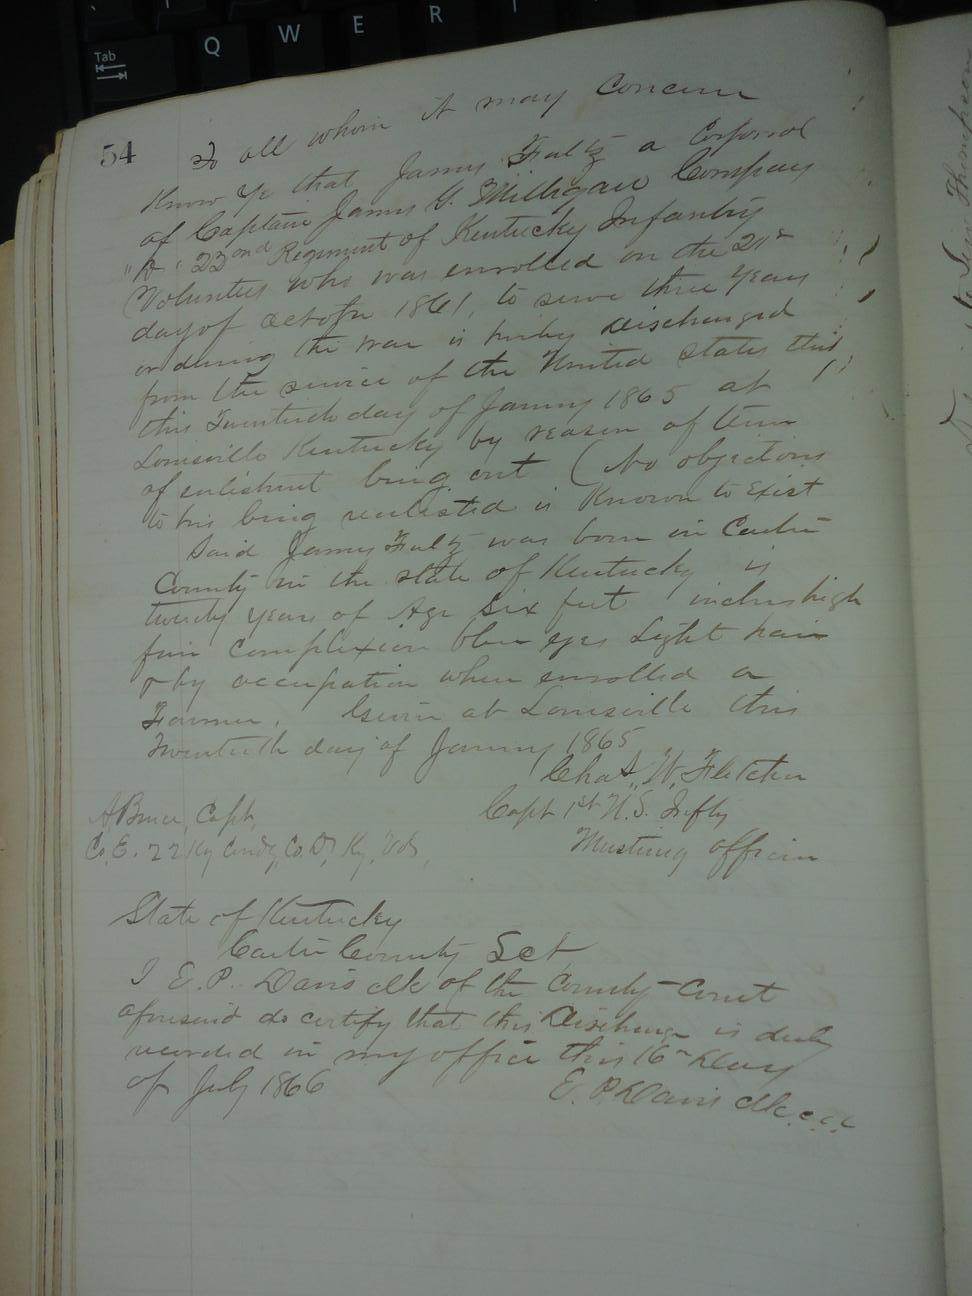 Tab Q W E R
54
To all whom it may Concern
Know ye that James Fultz a Corporal
of Captain James G. Milligan Company
"D" 22nd Regiment of Kentucky Infantry
Volunteers who was enrolled on the
day of October 1861, to serve three years
or during the war is hereby discharged
from the service of the United States this
this Twentieth day of January 1865 at
Louisville Kentucky by reason of term
of enlistment being out (No objections
to his being reenlisted is Known to Exist
Said James Fultz was born in Carter
County in the state of Kentucky is
twenty years of Age Six feet inches high
fair Complexion blue eyes Light hair
& by occupation when enrolled a
Farmer. Given at Louisville this
Twentieth day of January 1865
Chas. W. Fletcher
Capt 1st U.S. Infty
Mustering officer
A. Bruce, Capt,
Co. E. 22 Ky Comdg, Co. D, Ky, Vols,
State of Kentucky
Carter County Sct
I E. P. Davis clk of the County Court
aforesaid do certify that this Discharge is duly
recorded in my office this 16th day
of July 1866
E. P. Davis clk c.c.c.